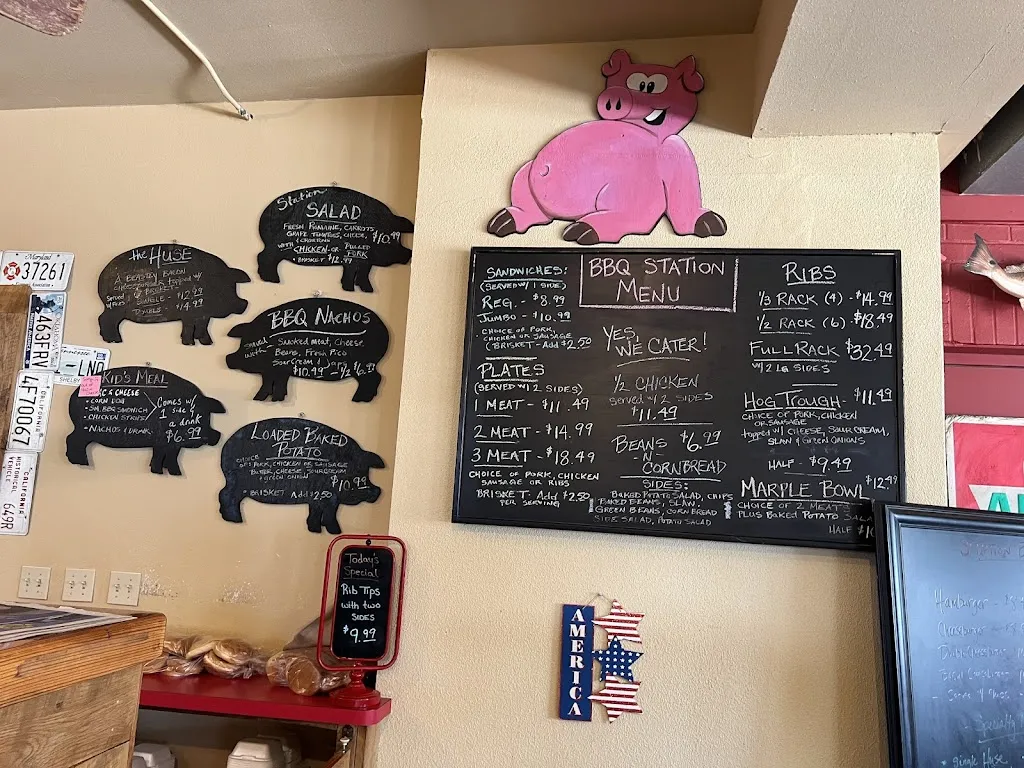 Station
SALAD
FRESH ROMAINE, CARROTS,
GRAPE TOMATOES, CHEESE,
WITH CHICKEN OR PULLED
PORK
$10.99
• BRISKET $12.99
the HUSE
A BEASTLY BACON
cheeseburger topped w/
BRISKET
SINGLE - $12.99
DOUBLE - $14.99
BBQ NACHOS
Smoked meat, Cheese,
Beans, Fresh Pico
Sour Cream &
$10.49
KID'S MEAL
& CHEESE
• CORN DOG
• SM. BBQ SANDWICH
• CHICKEN STRIPS
• NACHOS
Comes w/
1 side &
a drink
$6.99
LOADED BAKED
POTATO
CHOICE
OF PORK, CHICKEN OR SAUSAGE
BUTTER, CHEESE, SOUR CREAM
GREEN ONION
$10.99
• BRISKET Add $2.50
Maryland
37261
463FRV
LND
SHELBY
4F70067
CALIFORNIA
HISTORICAL
VEHICLE
CALIFORNIA
649P
Today's
Special
Rib Tips
with two
SIDES
$9.99
BBQ STATION
MENU
SANDWICHES:
(SERVED W/ 1 SIDE)
REG. - $8.99
JUMBO - $10.99
CHOICE OF PORK,
CHICKEN OR SAUSAGE
(BRISKET - Add $2.50
PLATES
(SERVED W/ 2 SIDES)
1 MEAT - $11.49
2 MEAT - $14.99
3 MEAT - $18.49
CHOICE OF PORK, CHICKEN
SAUSAGE OR RIBS
BRISKET: Add $2.50
PER SERVING)
YES,
WE CATER!
1/2 CHICKEN
served w/ 2 SIDES
$11.49
BEANS $6.99
-N-
CORNBREAD
SIDES:
BAKED POTATO SALAD, CHIPS
BAKED BEANS, SLAW,
GREEN BEANS, CORN BREAD
SIDE SALAD, POTATO SALAD
RIBS
1/3 RACK (4) - $14.99
1/2 RACK (6) - $18.49
FULL RACK $32.49
W/ 2 LG SIDES
HOG TROUGH - $11.49
CHOICE OF PORK, CHICKEN
OR SAUSAGE
topped w/ CHEESE, SOUR CREAM,
SLAW & GREEN ONIONS
HALF - $9.49
MARPLE BOWL $12.49
CHOICE OF 2 MEATS
PLUS BAKED POTATO SALA
HALF $10
AMERICA
Hamburger -
Single Huse